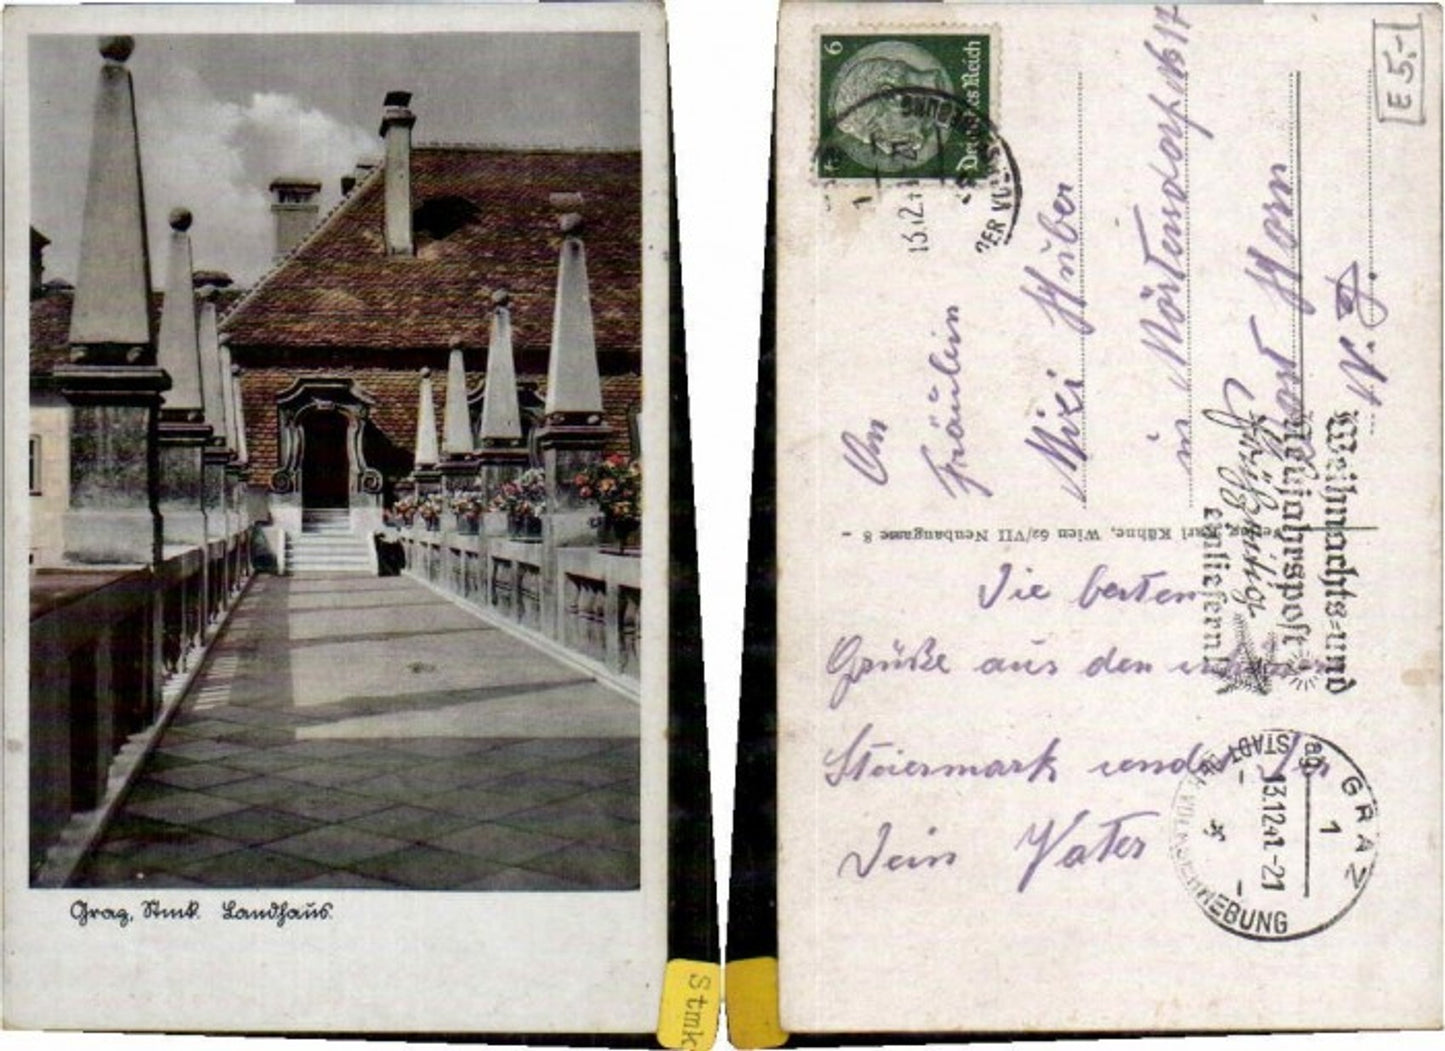 Graz, Stmk. Landhaus.
Stmk
6
Deutsches Reich
E 5,-
An
Fräulein
Mizi Huber
in Mörtersdorf No 17
Post Horn
N. D.
Weihnachts= und
Neujahrspost
frühzeitig
einliefern!
Karl Kühne, Wien 62/VII Neubaugasse 8 –
Die besten
Grüße aus den
Steiermark sendet Dir
Dein Vater
GRAZ
1
13.12.41-21
STADT DER VOLKSERHEBUNG